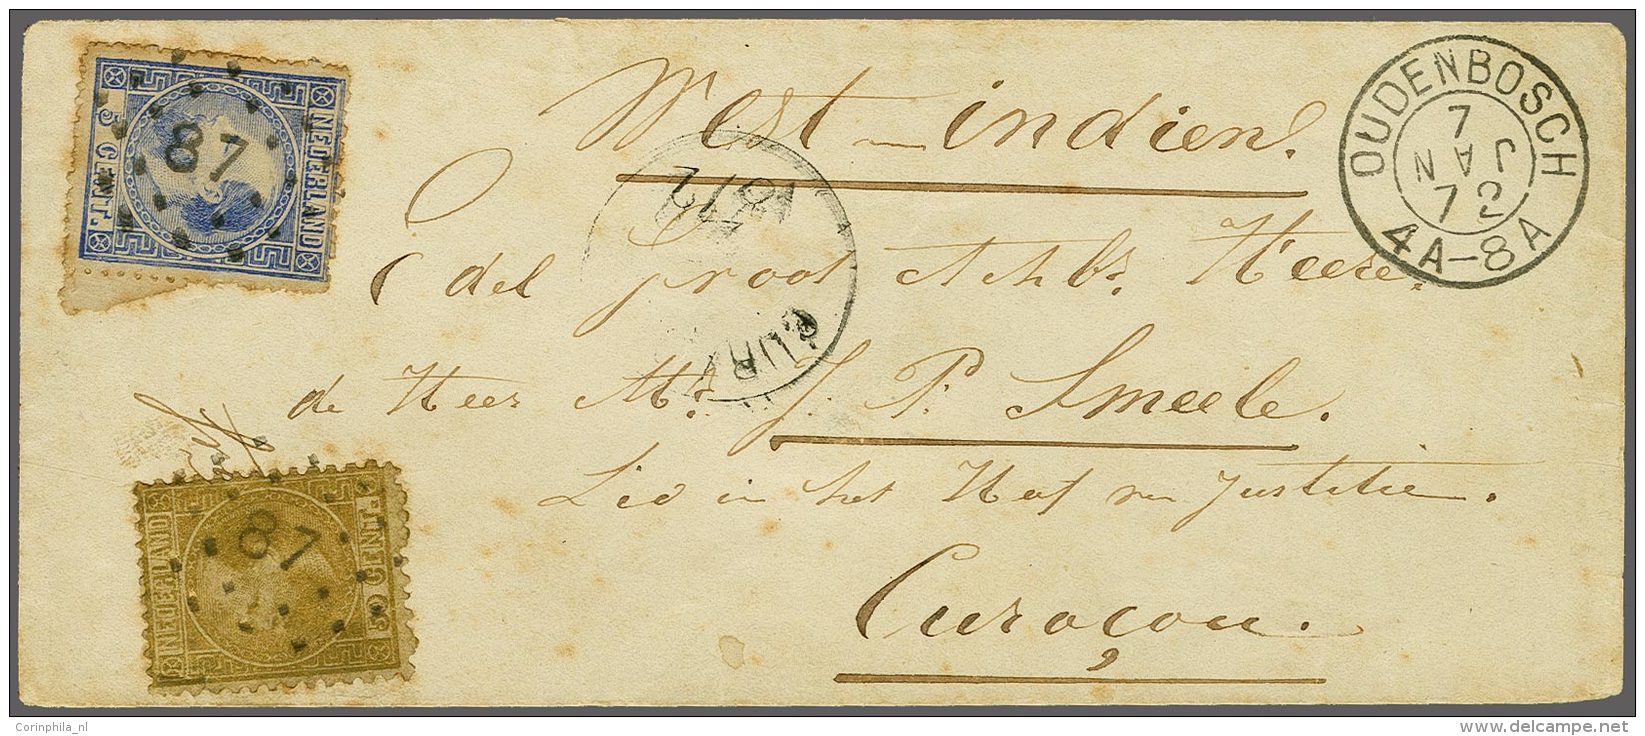 West-indien.
OUDENBOSCH
7
JAN
72
4A-8A
NEDERLAND
5 CENT.
87
Edel groot Achtb. Heere.
CURA
de Heer Mr. J. P. Smeele.
Lid in het Hof van Justitie.
Curaçou.
NEDERLAND
CENT.
87
Corinphila_nl
delcampe.net